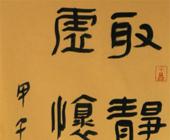 取靜
虛懷
甲午